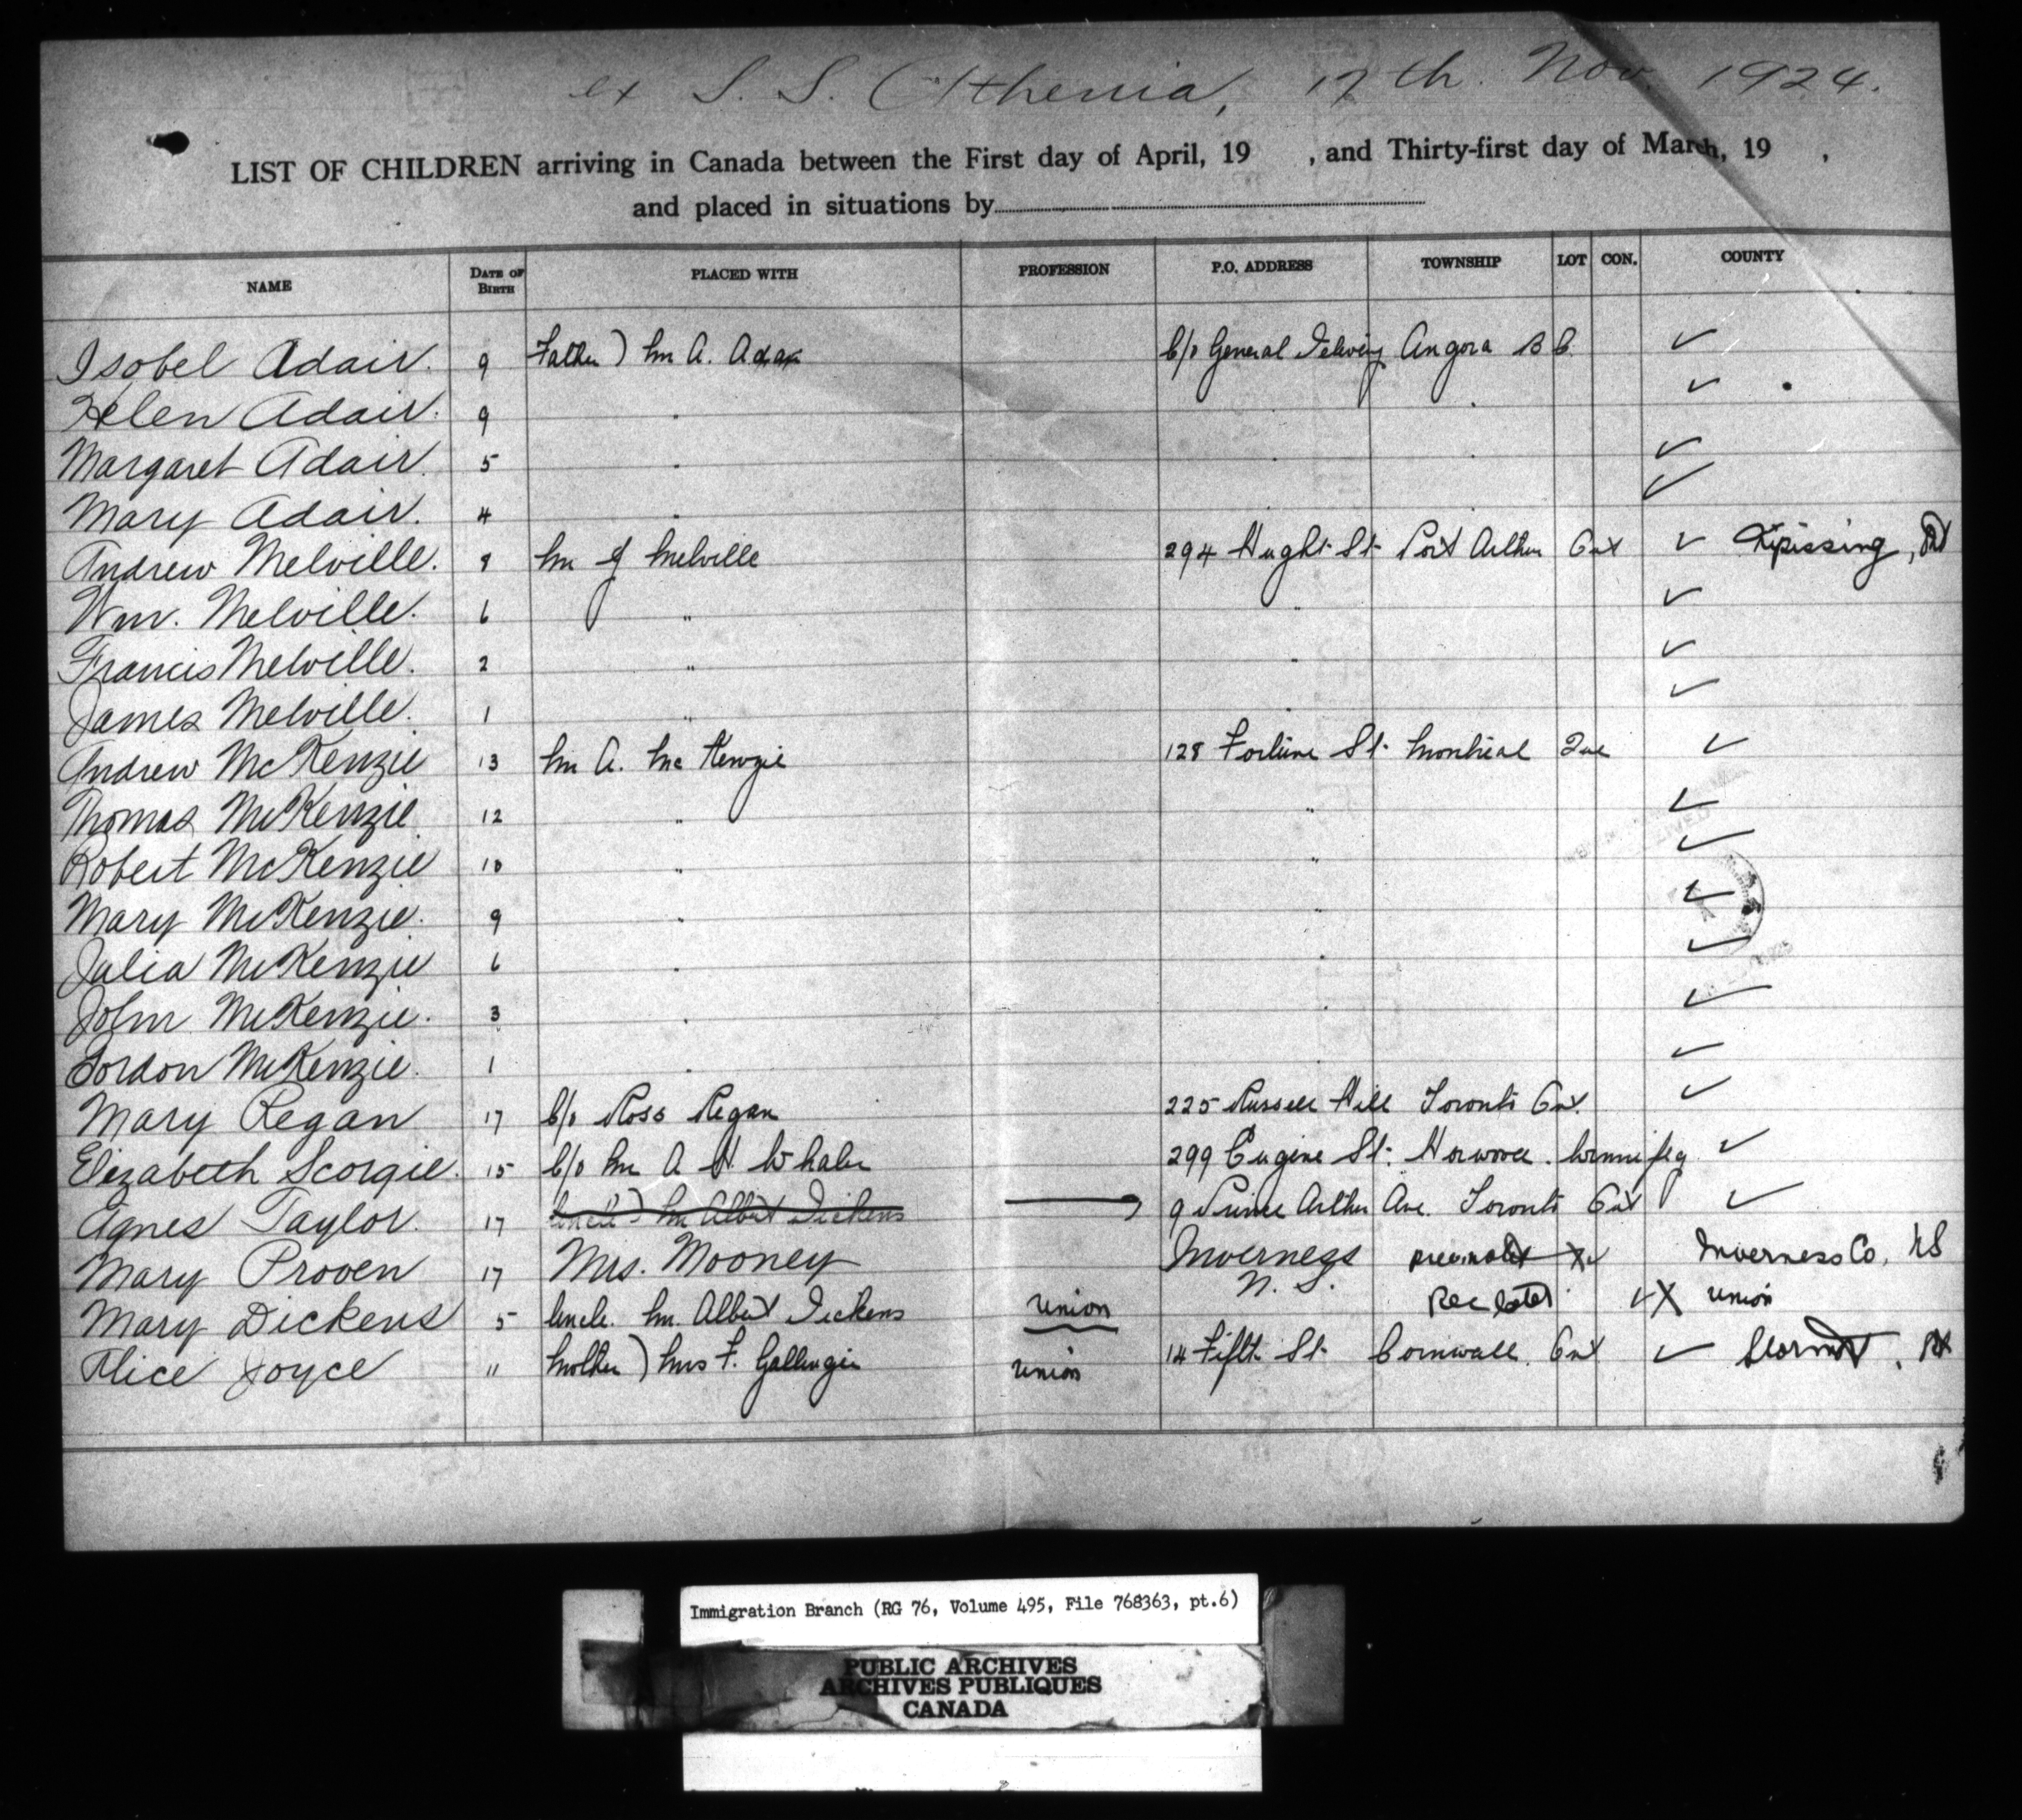 ex S. S. Athenia, 17th. Nov. 1924.
LIST OF CHILDREN arriving in Canada between the First day of April, 19 , and Thirty-first day of March, 19 ,
and placed in situations by
NAME DATE OF BIRTH PLACED WITH PROFESSION P.O. ADDRESS TOWNSHIP LOT CON. COUNTY
Isobel Adair. 9 Father) Mr A. Adair c/o General Delivery Angora B C ✓
Helen Adair. 9 " " " ✓
Margaret Adair. 5 " " " ✓
Mary Adair. 4 " " " ✓
Andrew Melville. 8 Mr J Melville 294 Hught St Port Arthur Ont ✓ Nipissing, Ont
Wm. Melville. 6 " " ✓
Francis Melville. 2 " " ✓
James Melville. 1 " " ✓
Andrew McKenzie 13 Mr A. McKenzie 128 Fortune St Montreal Que ✓
Thomas McKenzie 12 " " ✓
Robert McKenzie 10 " " ✓
Mary McKenzie. 9 " " ✓
Julia McKenzie 6 " " ✓
John McKenzie. 3 " " ✓
Gordon McKenzie. 1 " " ✓
Mary Regan 17 c/o Ross Regan 225 Russell Hill Toronto Ont. ✓
Elizabeth Scorgie. 15 c/o Mr A H Whaler 299 Eugene St. Norwood. Winnipeg ✓
Agnes Taylor. 17 Uncle) Mr Albert Dickens 9 Prince Arthur Ave. Toronto Ont ✓
Mary Proven 17 Mrs. Mooney Inverness N. S. Inverness Co, NS
Mary Dickens 5 Uncle. Mr. Albert Dickens union Rec later ✓X union
Alice Joyce 11 Mother) Mrs F. Gallinger union 14 Fifth St Cornwall. Ont ✓ Stormont, Ont
Immigration Branch (RG 76, Volume 495, File 768363, pt.6)
PUBLIC ARCHIVES
ARCHIVES PUBLIQUES
CANADA